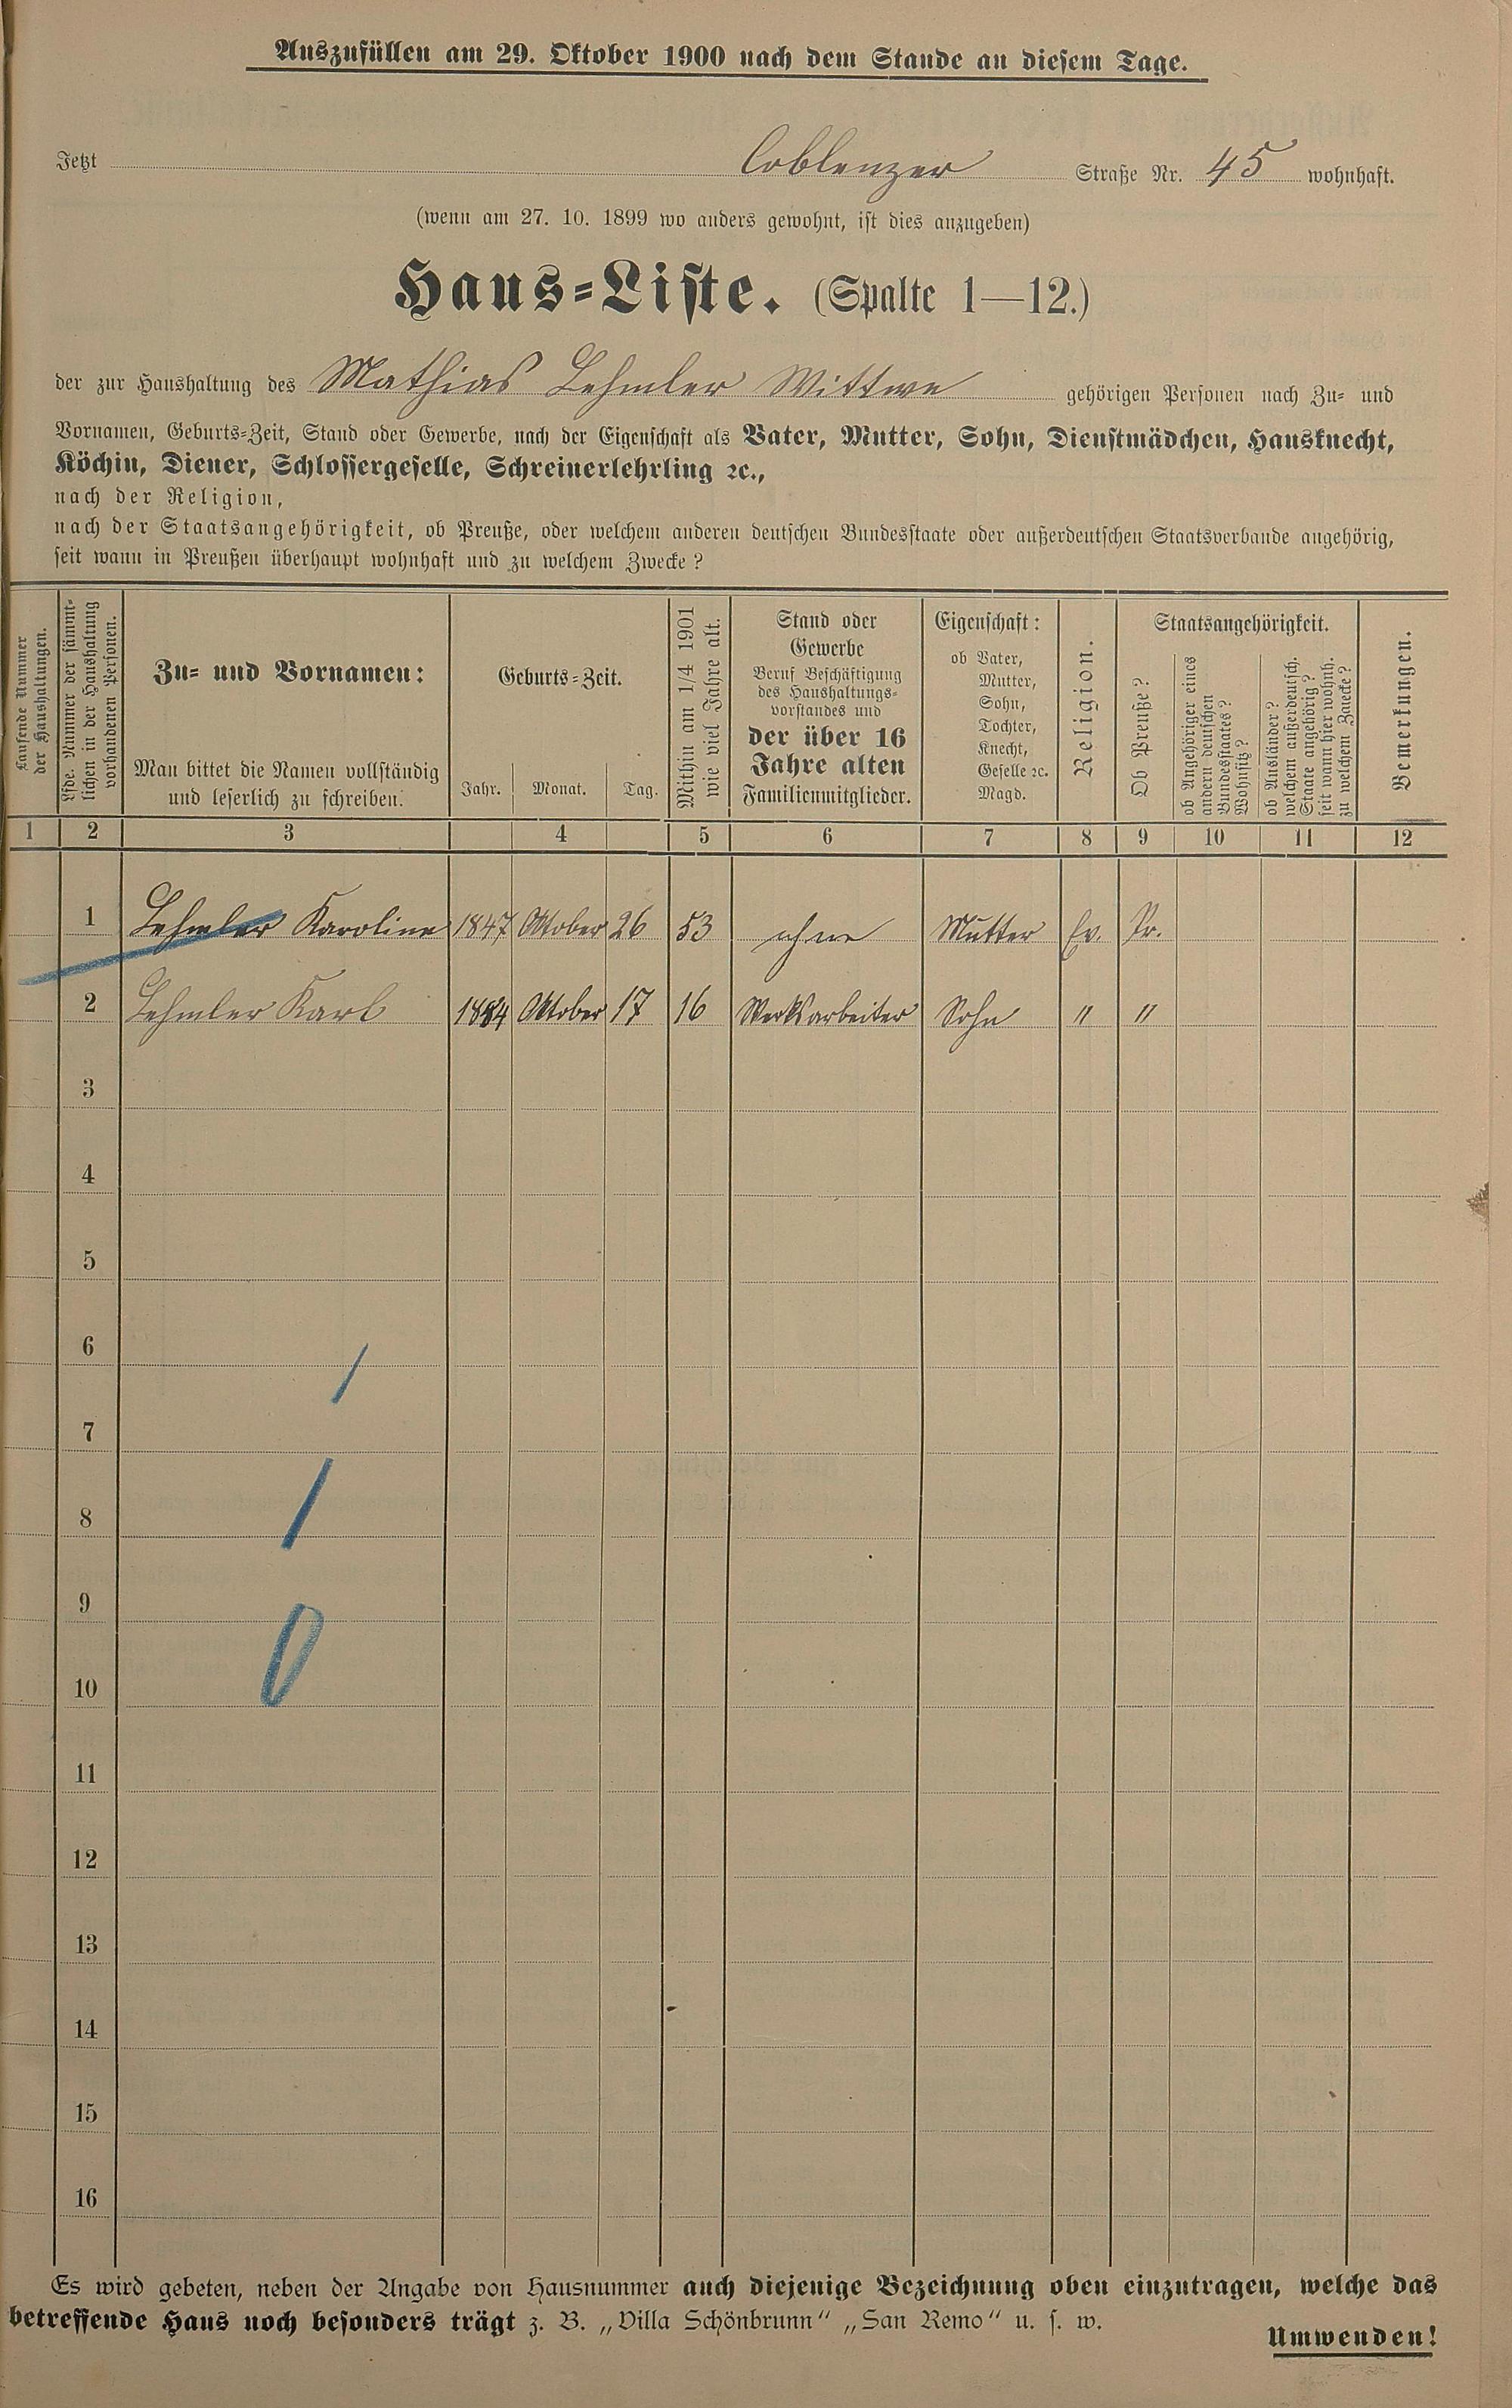 Auszufüllen am 29. Oktober 1900 nach dem Stande an diesem Tage.
Jetzt Coblenzer Straße Nr. 45 wohnhaft.
(wenn am 27. 10. 1899 wo anders gewohnt, ist dies anzugeben)
Haus-Liste. (Spalte 1—12.)
der zur Haushaltung des Mathias Lehmler Wittwe gehörigen Personen nach Zu- und
Vornamen, Geburts-Zeit, Stand oder Gewerbe, nach der Eigenschaft als Vater, Mutter, Sohn, Dienstmädchen, Hausknecht,
Köchin, Diener, Schlossergeselle, Schreinerlehrling ꝛc.,
nach der Religion,
nach der Staatsangehörigkeit, ob Preuße, oder welchem anderen deutschen Bundesstaate oder außerdeutschen Staatsverbande angehörig,
seit wann in Preußen überhaupt wohnhaft und zu welchem Zwecke?
Laufende Nummer
der Haushaltungen.
Lfde. Nummer der sämmt-
lichen in der Haushaltung
vorhandenen Personen.
Zu- und Vornamen:
Man bittet die Namen vollständig
und leserlich zu schreiben.
Geburts-Zeit.
Jahr. Monat. Tag.
Mithin am 1/4 1901
wie viel Jahre alt.
Stand oder
Gewerbe
Beruf Beschäftigung
des Haushaltungs-
vorstandes und
der über 16
Jahre alten
Familienmitglieder.
Eigenschaft:
ob Vater,
Mutter,
Sohn,
Tochter,
Knecht,
Geselle ꝛc.
Magd.
Religion.
Staatsangehörigkeit.
Ob Preuße?
ob Angehöriger eines
andern deutschen
Bundesstaates?
Wohnsitz?
ob Ausländer?
welchem außerdeutsch.
Staate angehörig?
seit wann hier wohnh.
zu welchem Zwecke?
Bemerkungen.
1 2 3 4 5 6 7 8 9 10 11 12
1 Lehmler Karoline 1847 Oktober 26 53 ohne Mutter Ev. Pr.
2 Lehmler Karl 1884 Oktober 17 16 Werksarbeiter Sohn " "
3
4
5
6
7
8
9
10
11
12
13
14
15
16
Es wird gebeten, neben der Angabe von Hausnummer auch diejenige Bezeichnung oben einzutragen, welche das
betreffende Haus noch besonders trägt z. B. „Villa Schönbrunn“ „San Remo“ u. s. w.
Umwenden!